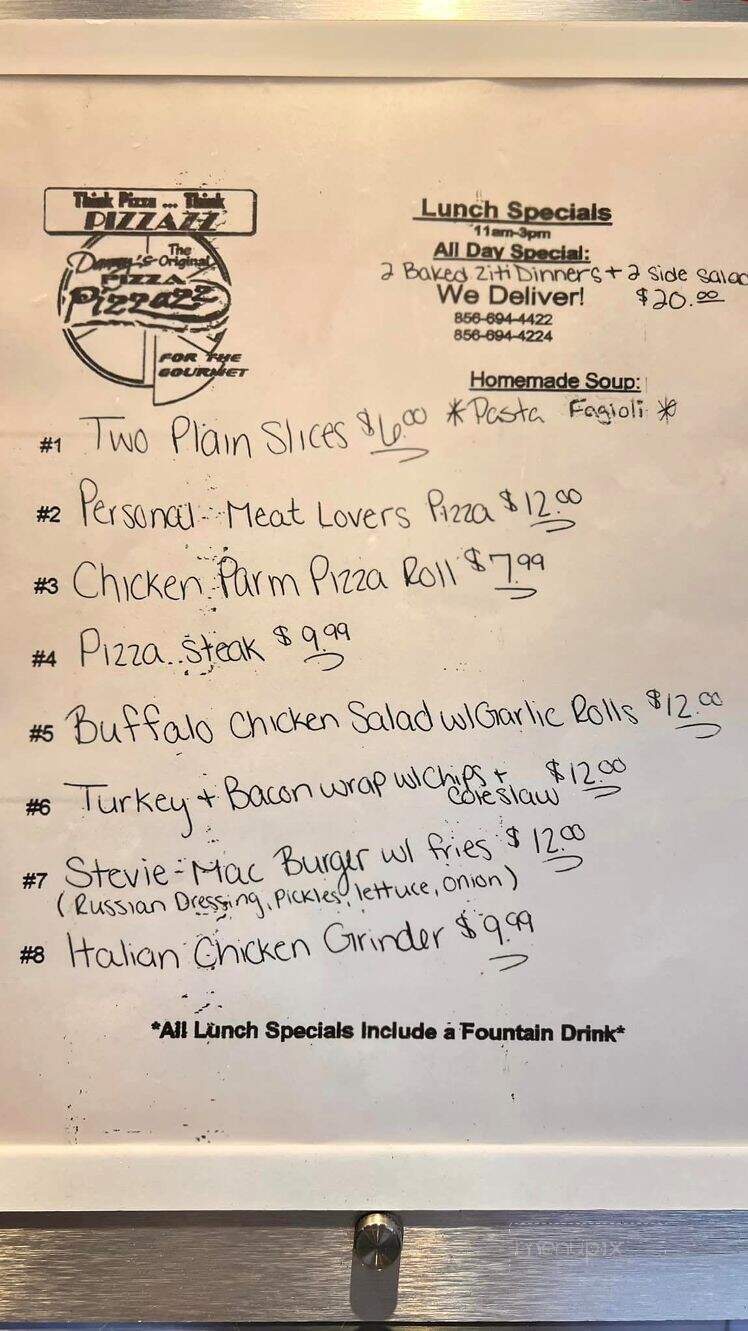 Think Pizza ... Think
PIZZAZZ
Danny's The Original
PIZZA
Pizzazz
FOR THE
GOURMET
Lunch Specials
11am-3pm
All Day Special:
2 Baked Ziti Dinners + 2 side salad
We Deliver! $20.00
856-694-4422
856-694-4224
Homemade Soup:
*Pasta Fagioli *
#1 Two Plain Slices $6.00
#2 Personal Meat Lovers Pizza $12.00
#3 Chicken Parm Pizza Roll $7.99
#4 Pizza Steak $9.99
#5 Buffalo Chicken Salad w/Garlic Rolls $12.00
#6 Turkey + Bacon wrap w/chips + coleslaw $12.00
#7 Stevie-Mac Burger w/ fries $12.00
(Russian Dressing, Pickles, lettuce, onion)
#8 Italian Chicken Grinder $9.99
*All Lunch Specials Include a Fountain Drink*
menupix